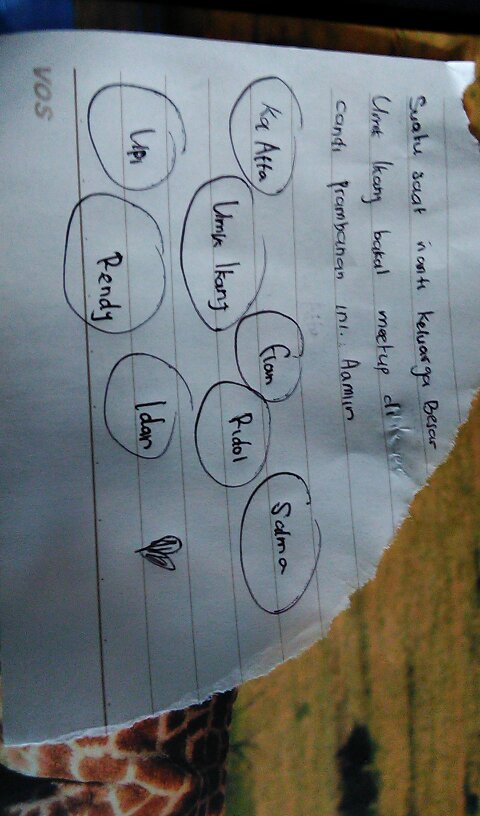 Suatu saat nanti keluarga Besar
Umk Ikang bakal meetup di
candi Prambanan ini... Aamiin
Ka Atta
Umk Ikang
Gian
Ridol
Salma
Upi
Rendy
Idan
VOS